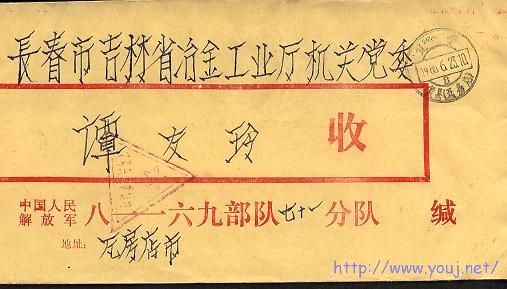 長春市吉林省冶金工业厅机关党委
1986.6.23.10
谭友玲 收
中国人民解放军 八一一六九部队七十一分队 缄
地址: 瓦房店市
http://www.youj.net/